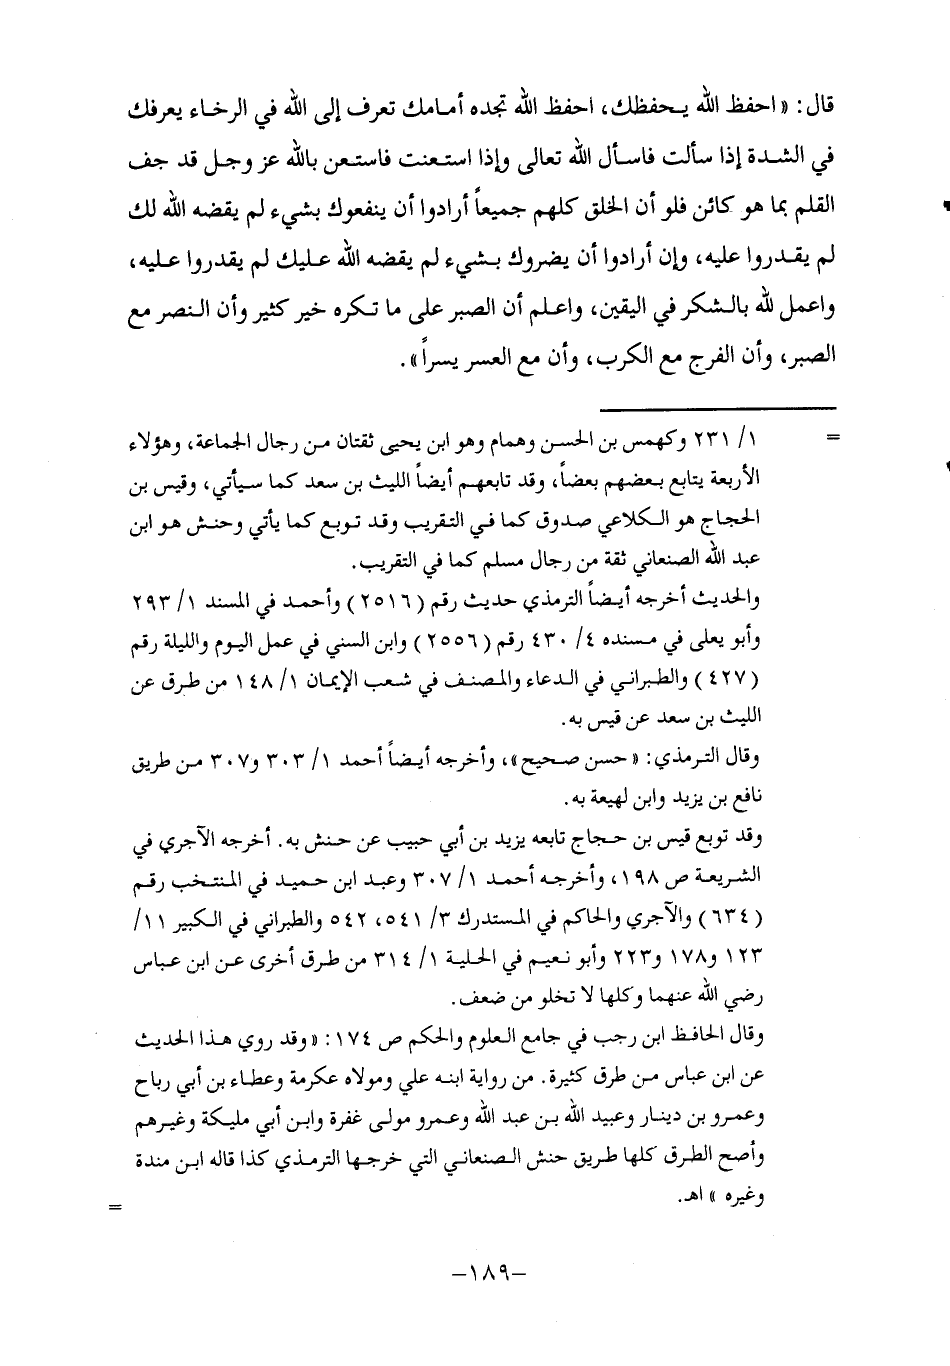 قال: «احفظ الله يحفظك، احفظ الله تجده أمامك تعرف إلى الله في الرخاء يعرفك
في الشدة إذا سألت فاسأل الله تعالى وإذا استعنت فاستعن بالله عز وجل قد جف
القلم بما هو كائن فلو أن الخلق كلهم جميعاً أرادوا أن ينفعوك بشيء لم يقضه الله لك
لم يقدروا عليه، وإن أرادوا أن يضروك بشيء لم يقضه الله عليك لم يقدروا عليه،
واعمل لله بالشكر في اليقين، واعلم أن الصبر على ما تكره خير كثير وأن النصر مع
الصبر، وأن الفرج مع الكرب، وأن مع العسر يسراً».
= ١/ ٢٣١ وكهمس بن الحسن وهمام وهو ابن يحيى ثقتان من رجال الجماعة، وهؤلاء
الأربعة يتابع بعضهم بعضاً، وقد تابعهم أيضاً الليث بن سعد كما سيأتي، وقيس بن
الحجاج هو الكلاعي صدوق كما في التقريب وقد توبع كما يأتي وحنش هو ابن
عبد الله الصنعاني ثقة من رجال مسلم كما في التقريب.
والحديث أخرجه أيضاً الترمذي حديث رقم (٢٥١٦) وأحمد في المسند ١/ ٢٩٣
وأبو يعلى في مسنده ٤/ ٤٣٠ رقم (٢٥٥٦) وابن السني في عمل اليوم والليلة رقم
(٤٢٧) والطبراني في الدعاء والمصنف في شعب الإيمان ١/ ١٤٨ من طرق عن
الليث بن سعد عن قيس به.
وقال الترمذي: «حسن صحيح»، وأخرجه أيضاً أحمد ١/ ٣٠٣ و٣٠٧ من طريق
نافع بن يزيد وابن لهيعة به.
وقد توبع قيس بن حجاج تابعه يزيد بن أبي حبيب عن حنش به. أخرجه الآجري في
الشريعة ص ١٩٨، وأخرجه أحمد ١/ ٣٠٧ وعبد ابن حميد في المنتخب رقم
(٦٣٤) والآجري والحاكم في المستدرك ٣/ ٥٤١، ٥٤٢ والطبراني في الكبير ١١/
١٢٣ و١٧٨ و٢٢٣ وأبو نعيم في الحلية ١/ ٣١٤ من طرق أخرى عن ابن عباس
رضي الله عنهما وكلها لا تخلو من ضعف.
وقال الحافظ ابن رجب في جامع العلوم والحكم ص ١٧٤: «وقد روي هذا الحديث
عن ابن عباس من طرق كثيرة. من رواية ابنه علي ومولاه عكرمة وعطاء بن أبي رباح
وعمرو بن دينار وعبيد الله بن عبد الله وعمرو مولى غفرة وابن أبي مليكة وغيرهم
وأصح الطرق كلها طريق حنش الصنعاني التي خرجها الترمذي كذا قاله ابن مندة
وغيره» اهـ. =
–١٨٩–